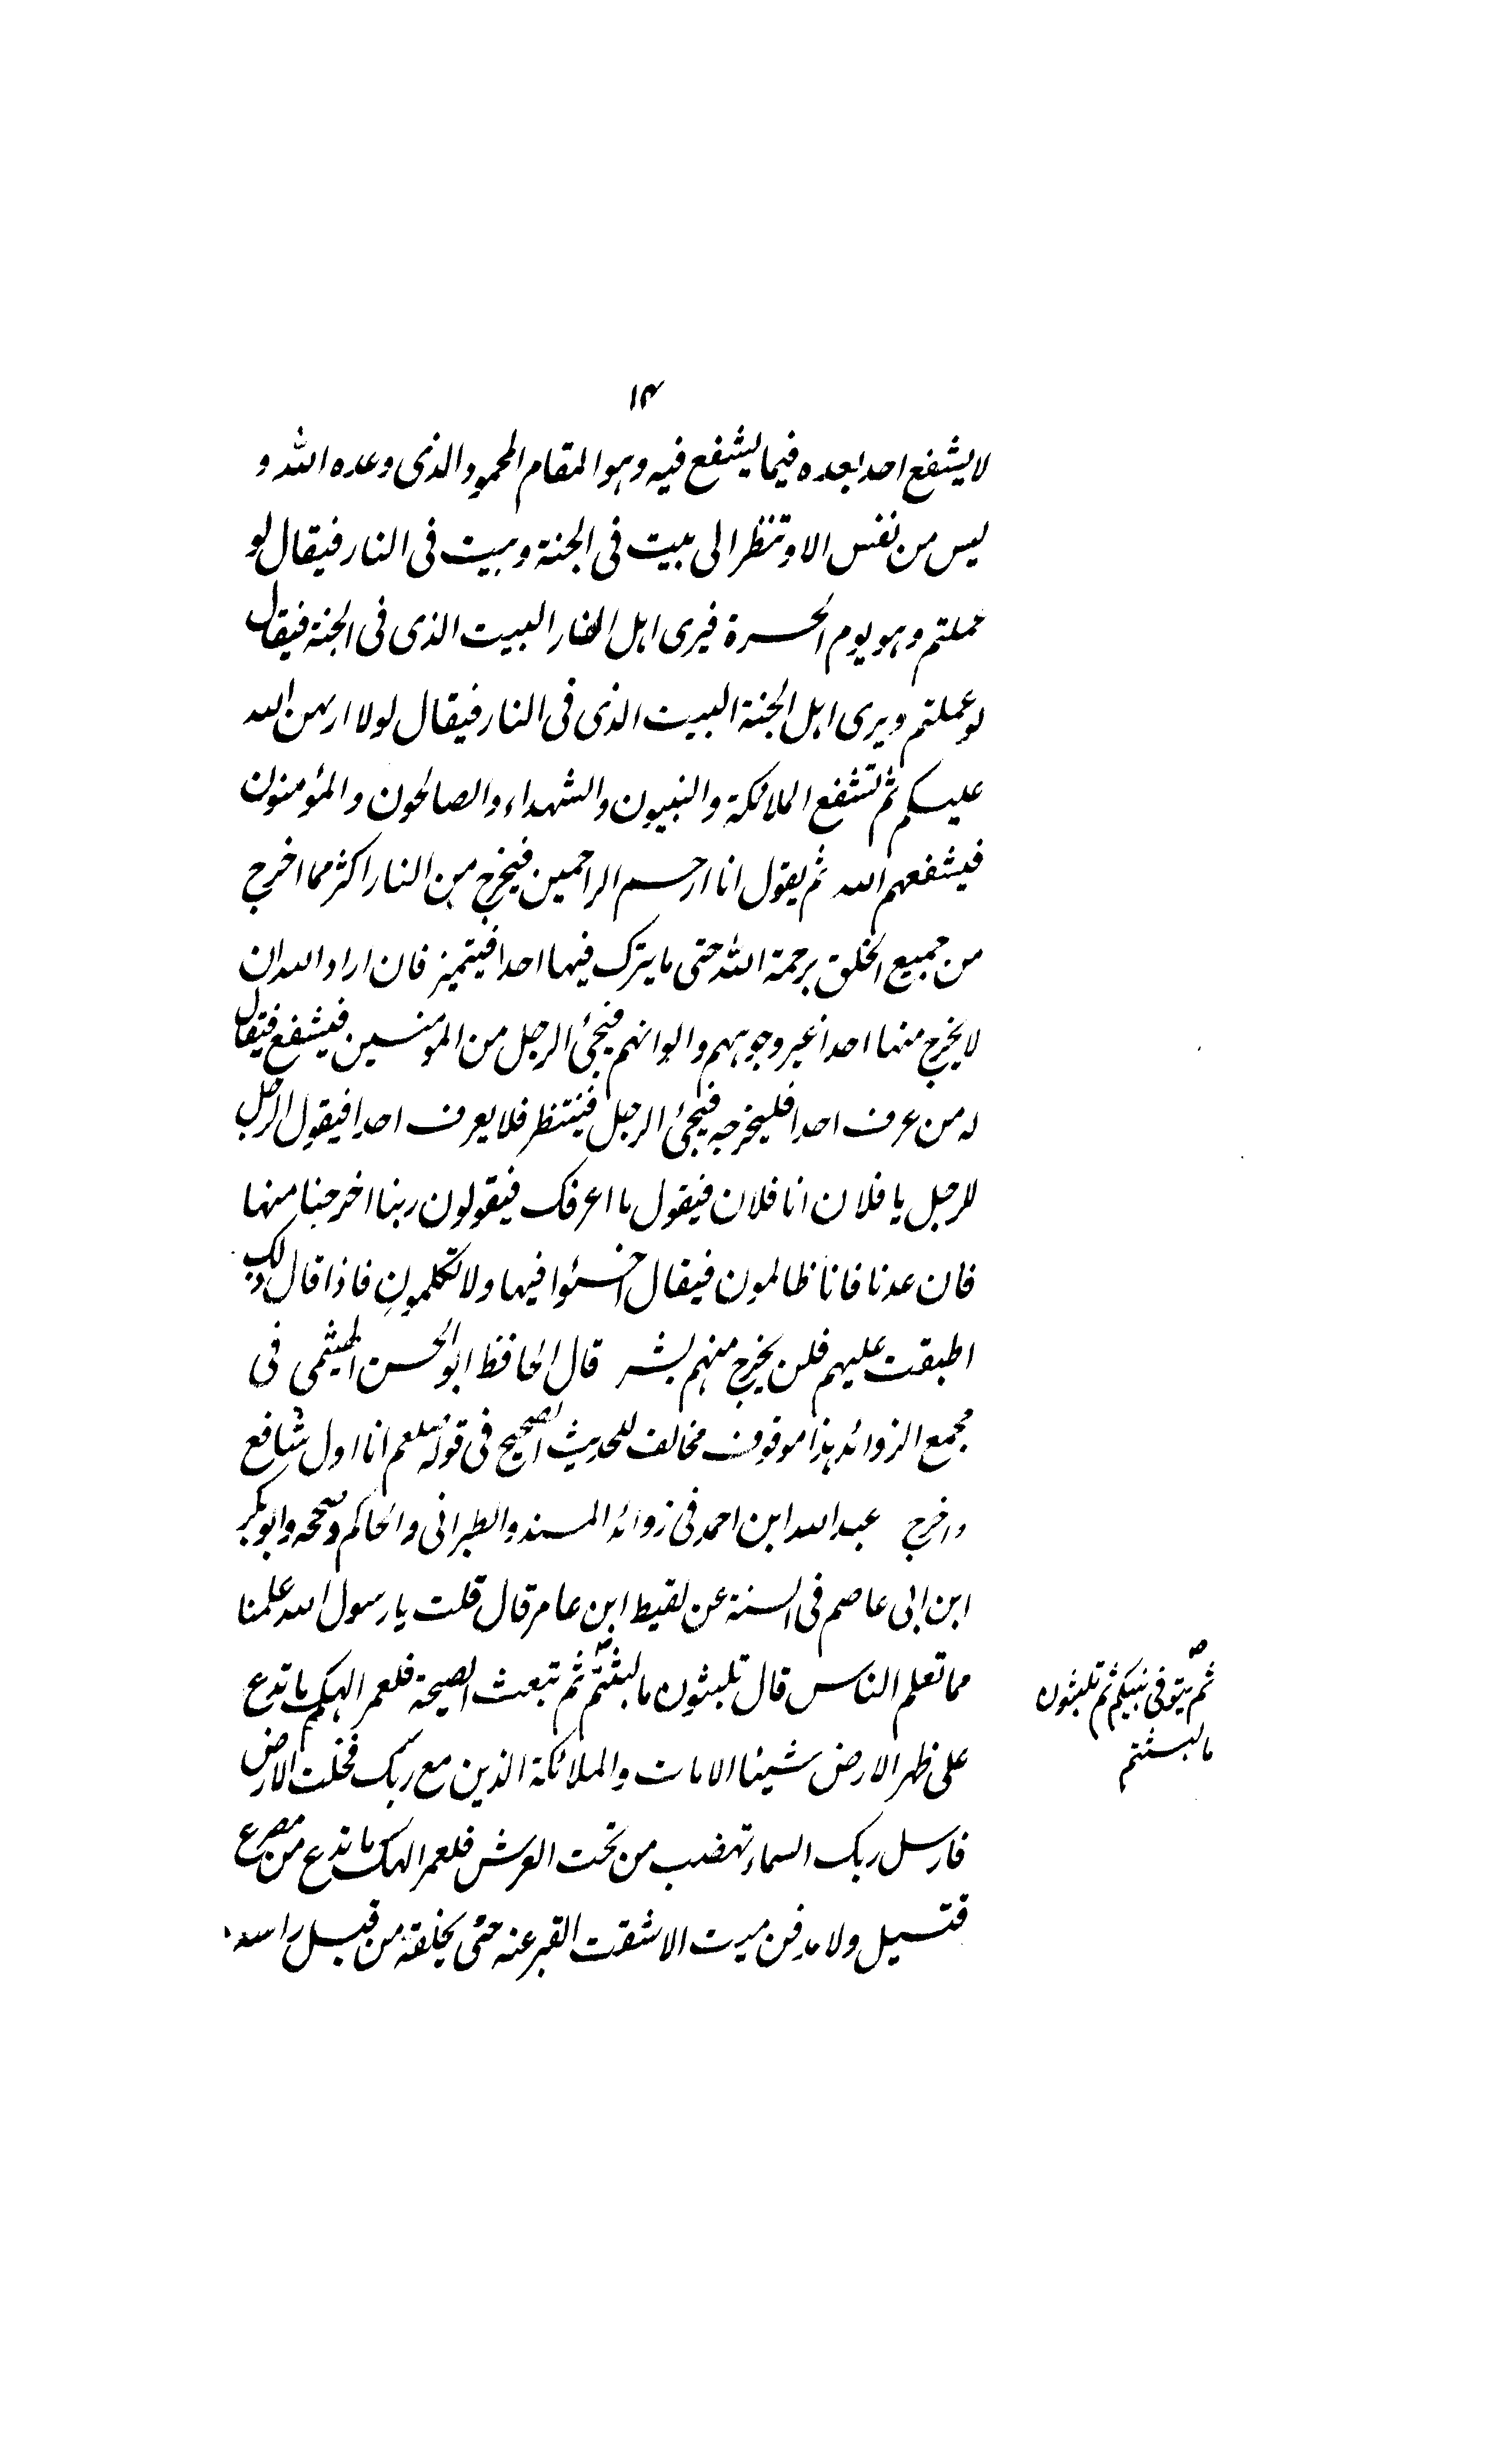 ۱۴
لا يشفع احد بعده فيما يشفع فيه وهو المقام المحمود الذى وعده الله و
ليس من نفس الا وتنظر الى بيت فى الجنة وبيت فى النار فيقال لو
عملتم وهو يوم الحسرة فيرى اهل النار البيت الذى فى الجنة فيقال
لو عملتم ويرى اهل الجنة البيت الذى فى النار فيقال لولا ان من الله
عليكم ثم تشفع الملائكة والنبيون والشهداء والصالحون والمؤمنون
فيشفعهم الله ثم يقول انا ارحم الراحمين فيخرج من النار اكثر مما اخرج
من جميع الخلق برحمة الله حتى ما يترك فيها احدا فيتميز فان اراد الله ان
لا يخرج منها احدا غير وجوههم والوانهم فيجئ الرجل من المومنين فيشفع فيقال
له من عرف احدا فليخرجه فيجئ الرجل فينتظر فلا يعرف احدا فيقول الرجل
للرجل يا فلان انا فلان فيقول ما اعرفك فيقولون ربنا اخرجنا منها
فان عدنا فانا ظالمون فيقال اخسئوا فيها ولا تكلمون فاذا قال ذلك
اطبقت عليهم فلن يخرج منهم بشر قال الحافظ ابو الحسن الهيثمى فى
مجمع الزوائد هذا موقوف مخالف للحديث الصحيح فى قوله صلعم انا اول شافع
واخرج عبد الله ابن احمد فى زوائد المسند والطبرانى والحاكم وصححه وابو بكر
ابن ابى عاصم فى السنة عن لقيط ابن عامر قال قلت يا رسول الله علمنا
مما تعلم الناس قال تلبثون ما لبثتم ثم تبعث الصيحة فلعمر الهكم ما تدع
على ظهر الارض شيئا الا مات والملائكة الذين مع ربك فخلت الارض
فارسل ربك السماء تهضب من تحت العرش فلعمر الهك ما تدع من مصرع
قتيل ولا مدفن ميت الا شقت القبر عنه حتى يخلقه من قبل راسه
ثم يتوفى نبيكم ثم تلبثون
ما لبثتم